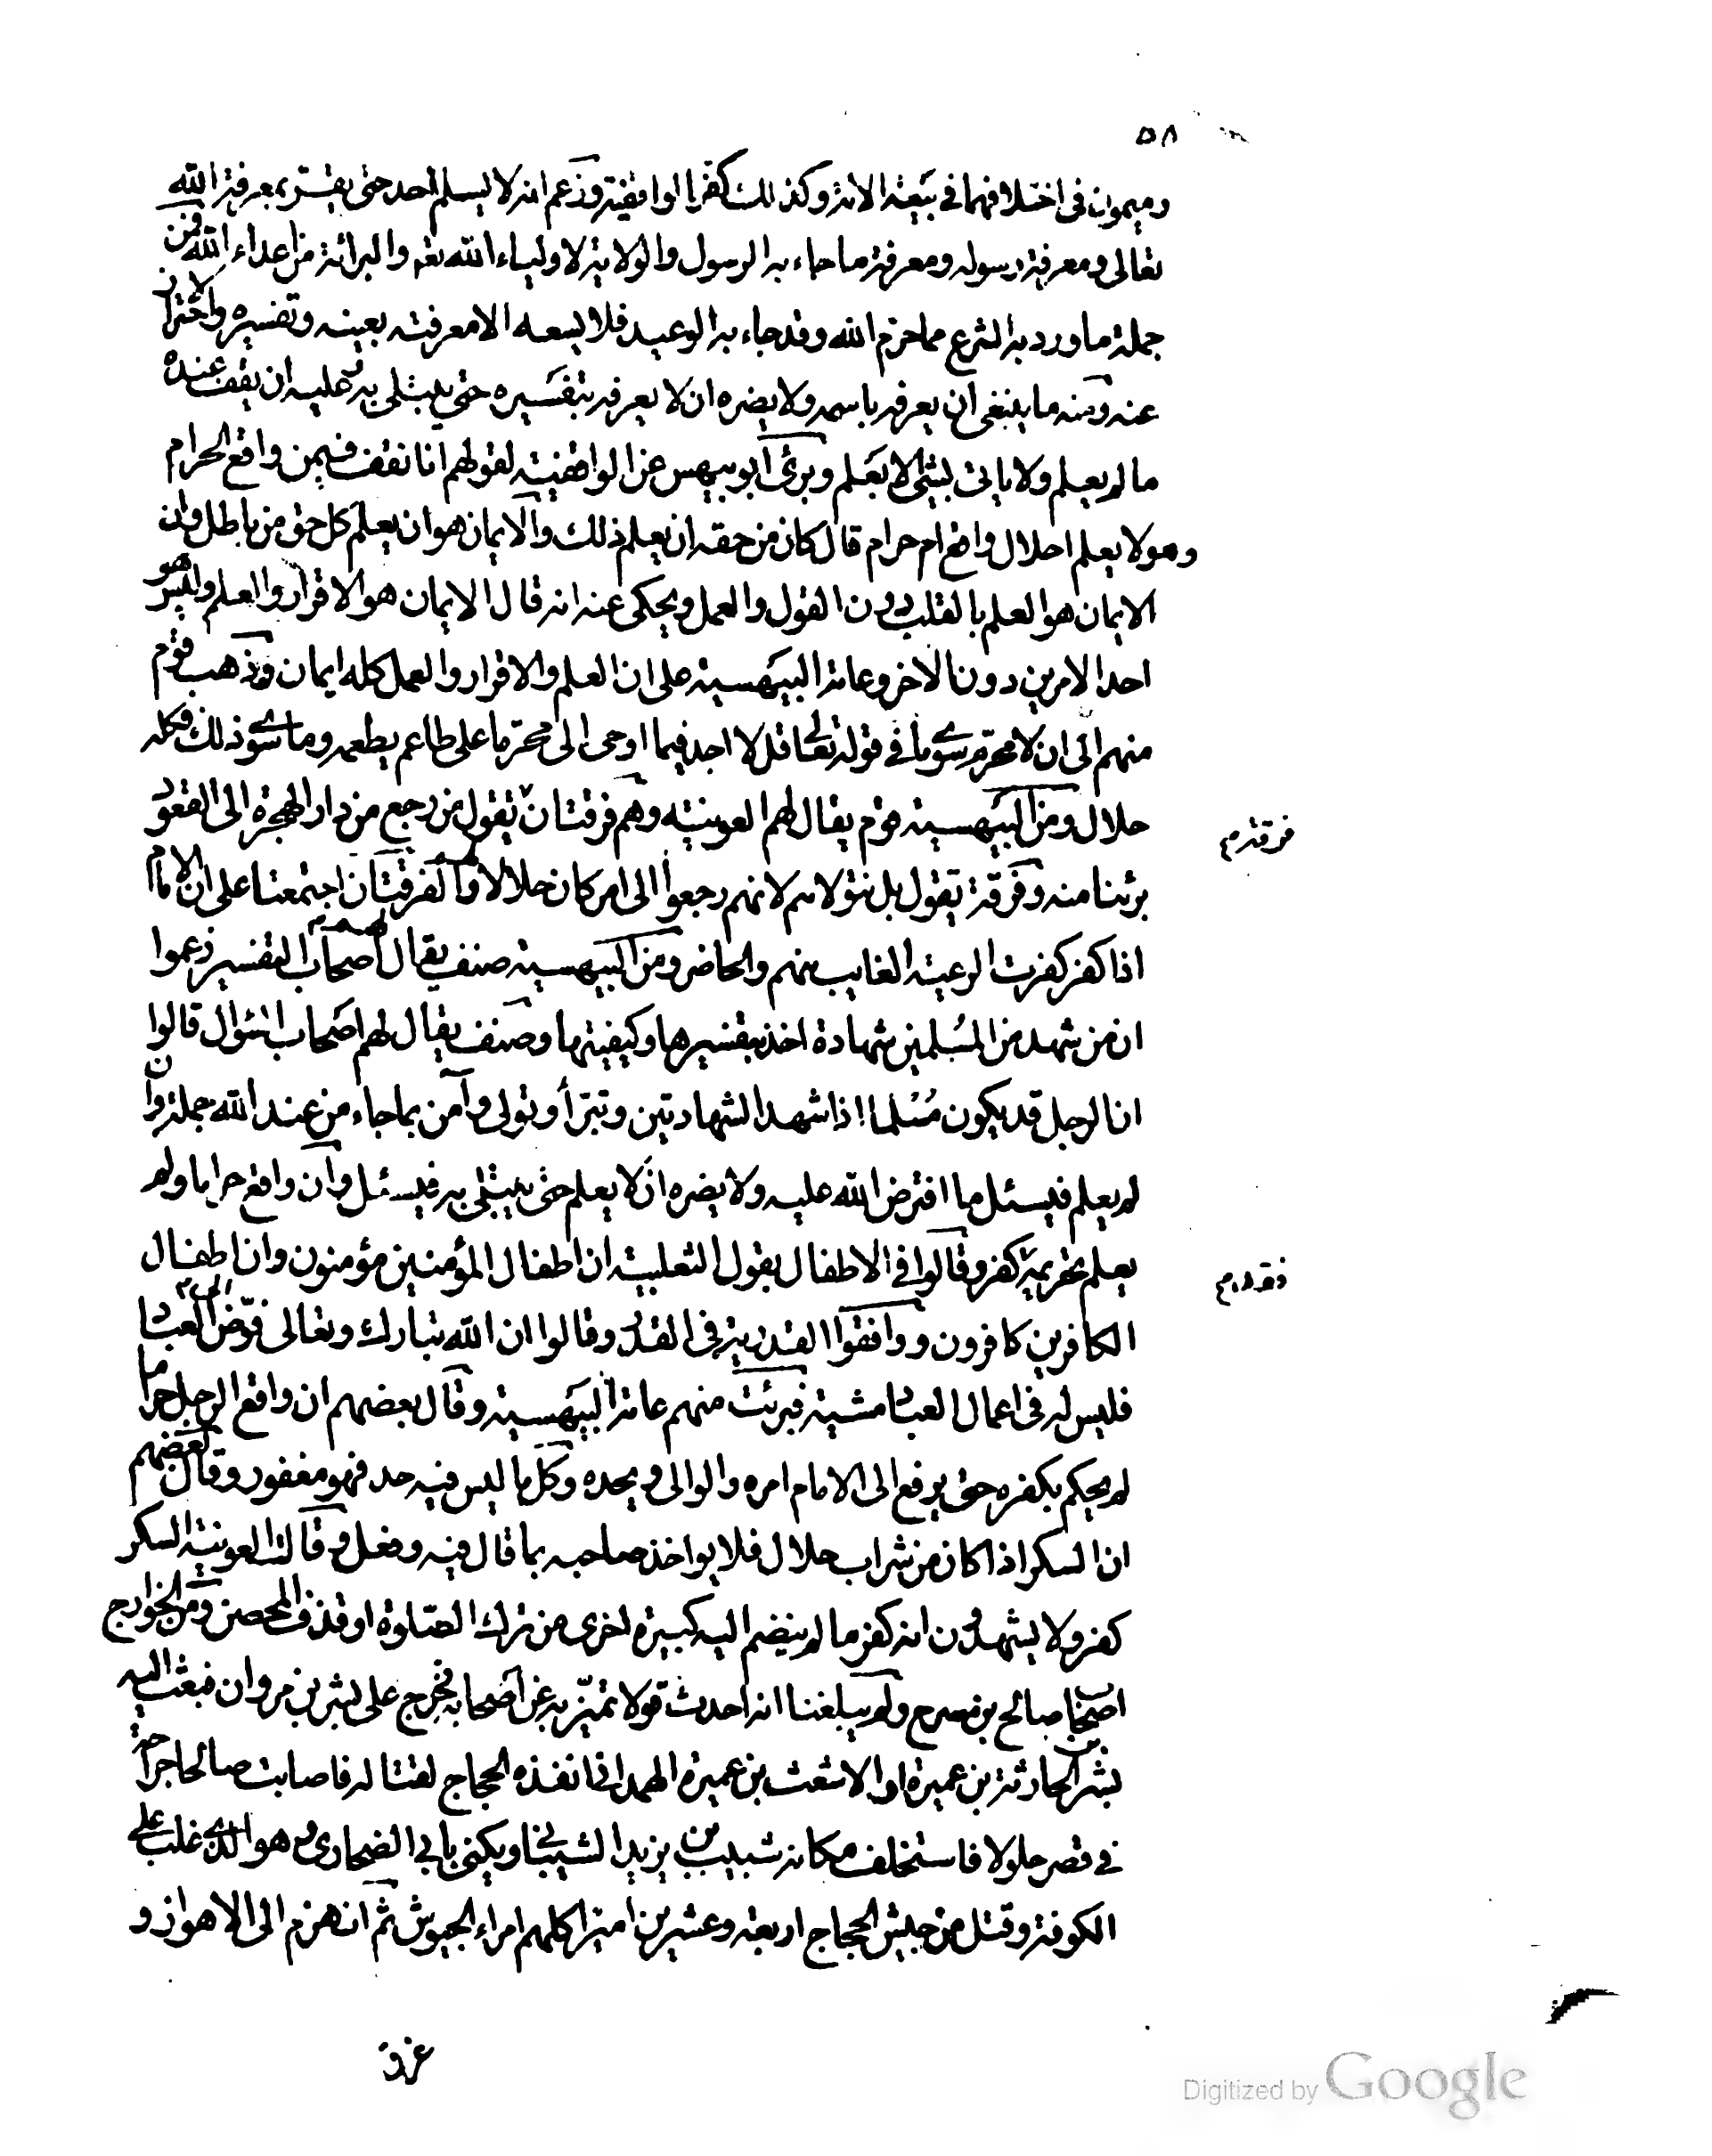 ٥٨
وميمون فى اختلافهما فى بيعة الامة وكذلك كفر بالواقفية وزعم انه لا يسلم احد حتى يقر بمعرفة الله
تعالى ومعرفة رسوله ومعرفة ما جاء به الرسول والولاية لاولياء الله تعم والبرائة من اعداء الله فمن
جملة ما ورد به الشرع مما حرم الله وقد جاء به الوعيد فلا يسعه الا معرفته بعينه وتفسيره والاحتراز
عنه ومنه ما ينبغى ان يعرفه باسمه ولا يضره ان لا يعرفه بتفسيره حتى يبتلى به وعليه ان يقف عنده
ما لم يعلم ولا ياتى بشئ الا بعلم وبرئ ابو بيهس عن الواقفية لقولهم انا نقف فيمن واقع الحرام
وهو لا يعلم احلال واقع ام حرام قال كان من حقه ان يعلم ذلك والايمان هو ان يعلم كل حق من باطل وان
الايمان هو العلم بالقلب دون القول والعمل ويحكى عنه انه قال الايمان هو الاقرار والعلم وليس هو
احد الامرين دون الاخر وعامة البيهسية على ان العلم والاقرار والعمل كله ايمان وذهب قوم
منهم الى ان لا محرم سوى ما فى قوله تعالى قل لا اجد فيما اوحى الى محرما على طاعم يطعمه وما سوى ذلك فكله
حلال ومن البيهسية قوم يقال لهم العونية وهم فرقتان تقول من رجع من دار الهجرة الى القعود
فرقة م
برئنا منه وفرقة تقول بل نتولاهم لانهم رجعوا الى امر كان حلالا والفرقتان اجتمعتا على ان الامام
اذا كفر كفرت الرعية الغايب منهم والحاضر ومن البيهسية صنف يقال لهم اصحاب التفسير زعموا
ان من شهد من المسلمين شهادة اخذ بتفسيرها وكيفيتها وصنف يقال لهم اصحاب السؤال قالوا
ان الرجل قد يكون مسلما اذا شهد الشهادتين وتبرأ وتولى وآمن بما جاء من عند الله جملة وان
لم يعلم فيسئل ما افترض الله عليه ولا يضره ان لا يعلم حتى يبتلى به فيسئل وان واقع حراما ولم
يعلم تحريمه كفر وقالوا فى الاطفال بقول الثعلبية ان اطفال المؤمنين مؤمنون وان اطفال
الكافرين كافرون ووافقوا القدرية فى القدر وقالوا ان الله تبارك وتعالى فوض الى العباد
فليس له فى اعمال العباد مشية فبرئت منهم عامة البيهسية وقال بعضهم ان واقع الرجل حراما
لم يحكم بكفره حتى يرفع الى الامام امره والوالى ويحده وكل ما ليس فيه حد فهو مغفور وقال بعضهم
ان السكر اذا كان من شراب حلال فلا يواخذ صاحبه بما قال فيه وفعل وقالت العونية السكر
كفر ولا يشهدون انه كفر ما لم ينضم اليه كبيرة اخرى من ترك الصلوة او قذف المحصن ومن الخوارج
اصحاب صالح بن مسرح ولم يبلغنا انه احدث قولا تميز به عن اصحابه فخرج على بشر بن مروان فبعث اليه
بشر الحارثة بن عميرة او الاشعث بن عميرة الهمدانى انفذه الحجاج لقتاله فاصابت صالحا جراحة
فى قصر جلولا فاستخلف مكانه شبيب بن يزيد الشيبانى ويكنى بابى الضحارى وهو الذى غلب على
الكوفة وقتل من جيش الحجاج اربعة وعشرين اميرا كلهم امراء الجيوش ثم انهزم الى الاهواز و
غرق
Digitized by Google